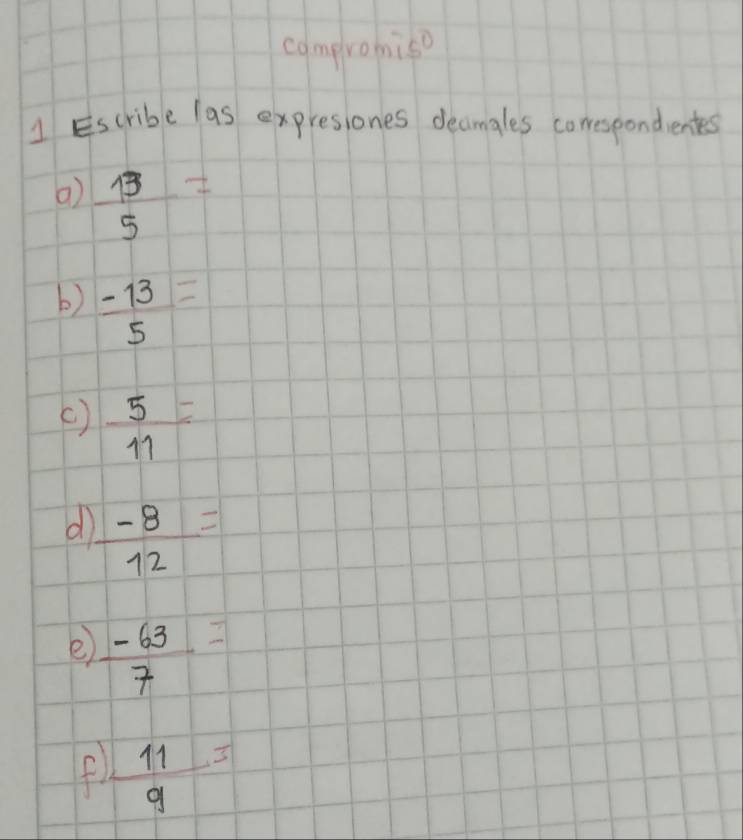 compromiso
1 Escribe las expresiones decimales correspondientes
a) 13/5 =
b) -13/5 =
c) 5/11 =
d) -8/12 =
e) -63/7 =
f) 11/9 =